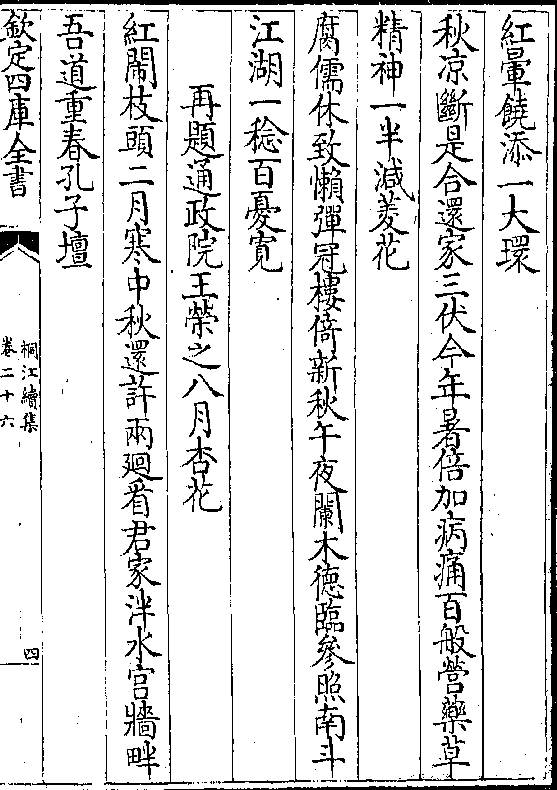 紅暈饒添一大環
秋凉斷是合還家三伏今年暑倍加病痛百般營藥草
精神一半減菱花
腐儒休致懶彈冠樓倚新秋午夜闌木德臨參照南斗
江湖一稔百憂寛
再題通政院王榮之八月杏花
紅閙枝頭二月寒中秋還許兩廻看君家泮水宫牆畔
吾道重春孔子壇
欽定四庫全書
桐江續集
卷二十六
四